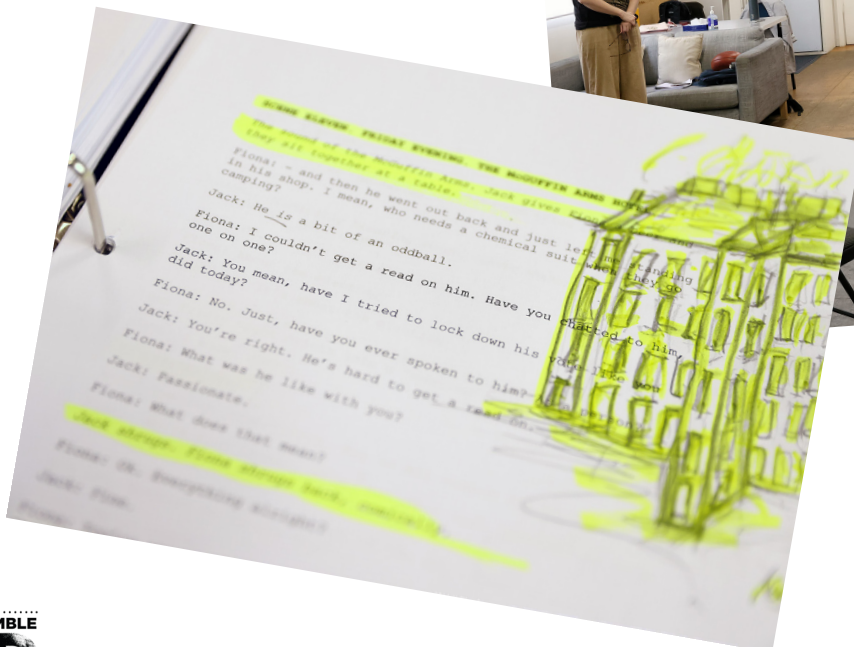 SCENE ELEVEN. FRIDAY EVENING. THE McGUFFIN ARMS
The sound of the McGuffin Arms. Jack gives Fiona
they sit together at a table.
Fiona: – and then he went out back and just left me standing
in his shop. I mean, who needs a chemical suit when they go
camping?
Jack: He is a bit of an oddball.
Fiona: I couldn't get a read on him. Have you chatted to him,
one on one?
Jack: You mean, have I tried to lock down his vote like you
did today?
Fiona: No. Just, have you ever spoken to him?
Jack: You're right. He's hard to get a read on.
Fiona: What was he like with you?
Jack: Passionate.
Fiona: What does that mean?
Jack shrugs. Fiona shrugs back,
Fiona: Ok. Everything alright?
Jack: Fine.
MBLE